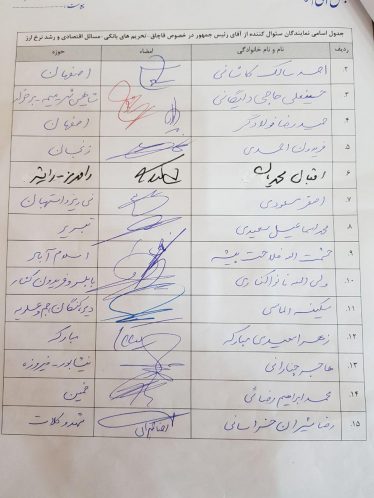 جدول اسامی نمایندگان سئوال کننده از آقای رئیس جمهور در خصوص قاچاق- تحریم های بانکی- مسائل اقتصادی و رشد نرخ ارز
ردیف نام و نام خانوادگی امضاء حوزه
۲ احمد سالک کاشانی اصفهان
۳ حسینعلی حاجی دلیگانی شاهین شهر میمه - برخوار
۴ حمیدرضا فولادگر اصفهان
۵ فریدون احمدی زنجان
۶ اقبال محمدیان رامهرمز - رامشیر
۷. اصغر مسعودی نی ریز و استهبان
۸ محمد اسماعیل سعیدی تبریز
۹ حشمت اله فلاحت پیشه اسلام آباد
۱۰. ولی اله نانواکناری بابلسر و فریدون کنار
۱۱. سکینه الماسی دیر، کنگان، جم و عسلویه
۱۲. زهرا سعیدی مبارکه مبارکه
۱۳. هاجر چنارانی نیشابور - فیروزه
۱۴. محمد ابراهیم رضائی خمین
۱۵. رضا شیران خراسانی مشهد و کلات